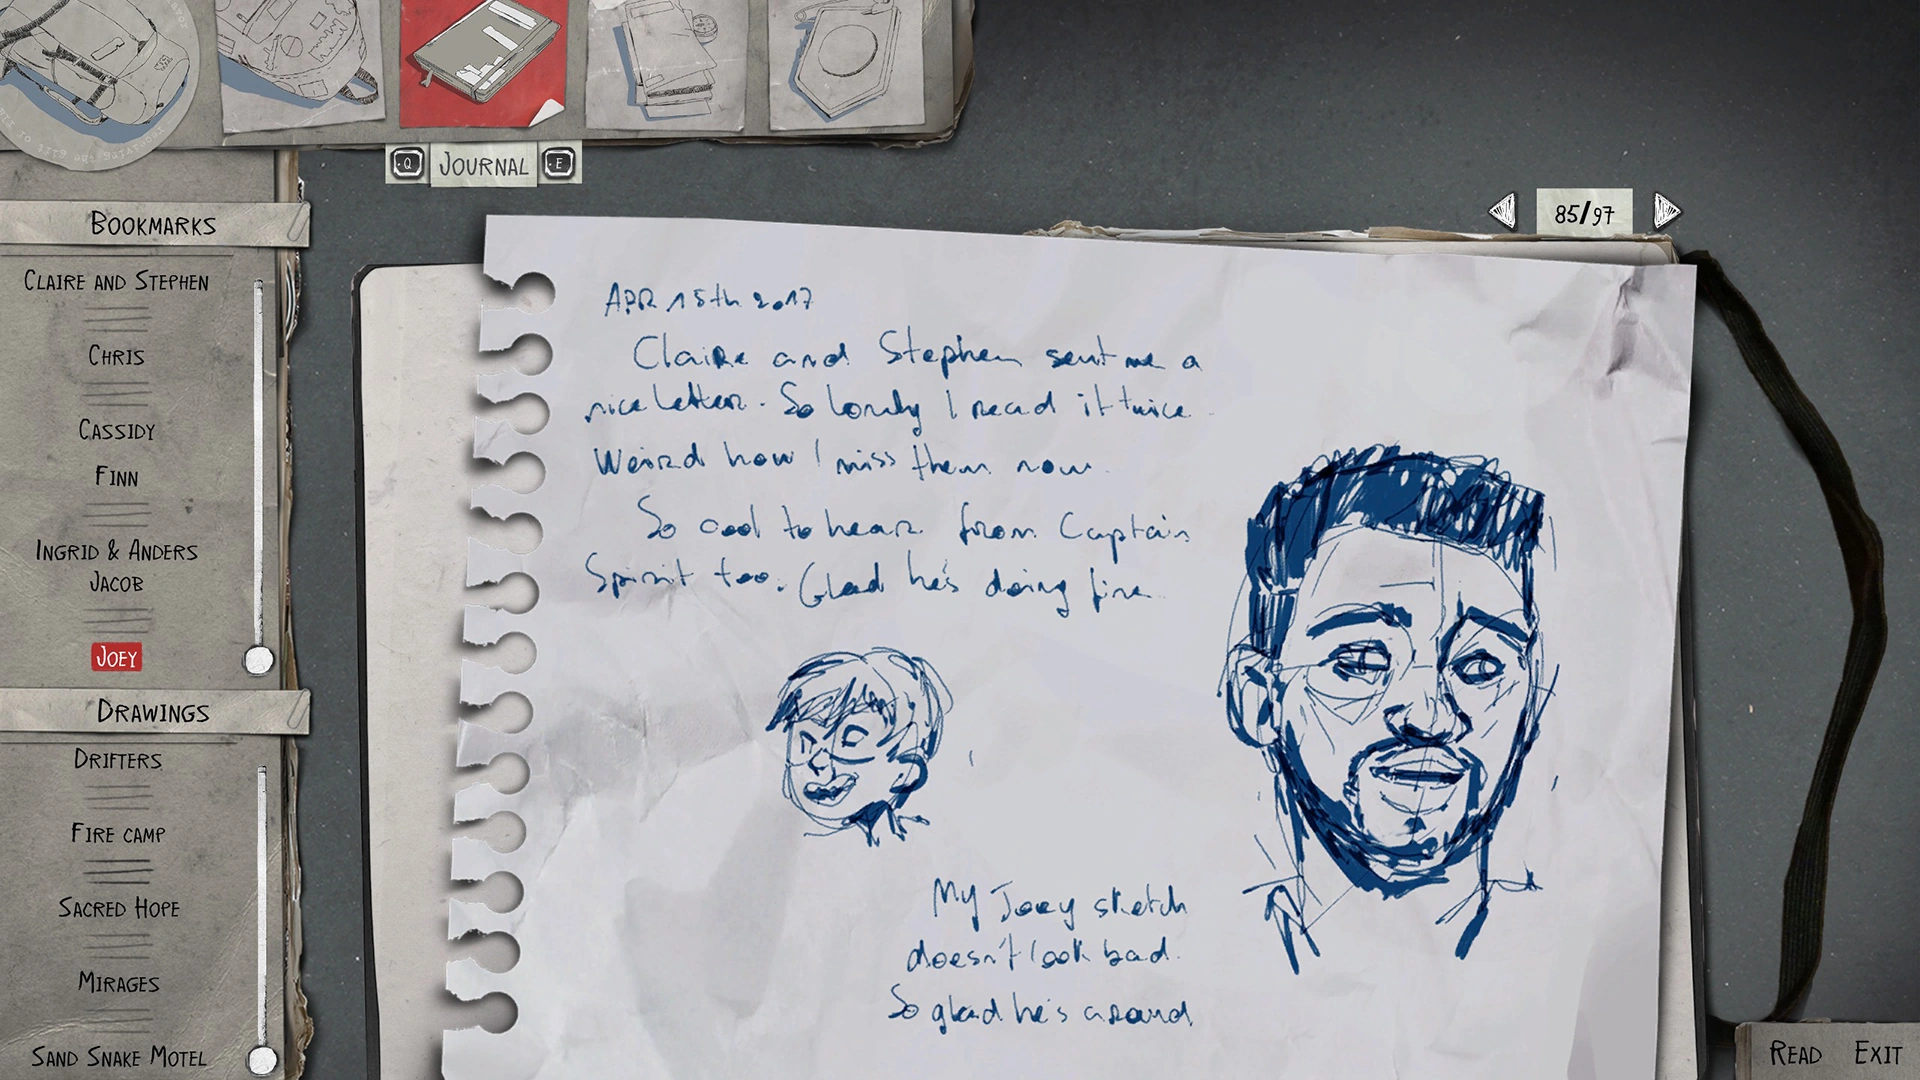 Q JOURNAL E
BOOKMARKS
CLAIRE AND STEPHEN
CHRIS
CASSIDY
FINN
INGRID & ANDERS
JACOB
JOEY
DRAWINGS
DRIFTERS
FIRE CAMP
SACRED HOPE
MIRAGES
SAND SNAKE MOTEL
85/97
APR 15th 2017
Claire and Stephen sent me a
nice letter. So lonely I read it twice
Weird how I miss them now.
So cool to hear from Captain
Spirit too. Glad he's doing fine
My Joey sketch
doesn't look bad.
So glad he's around
READ EXIT